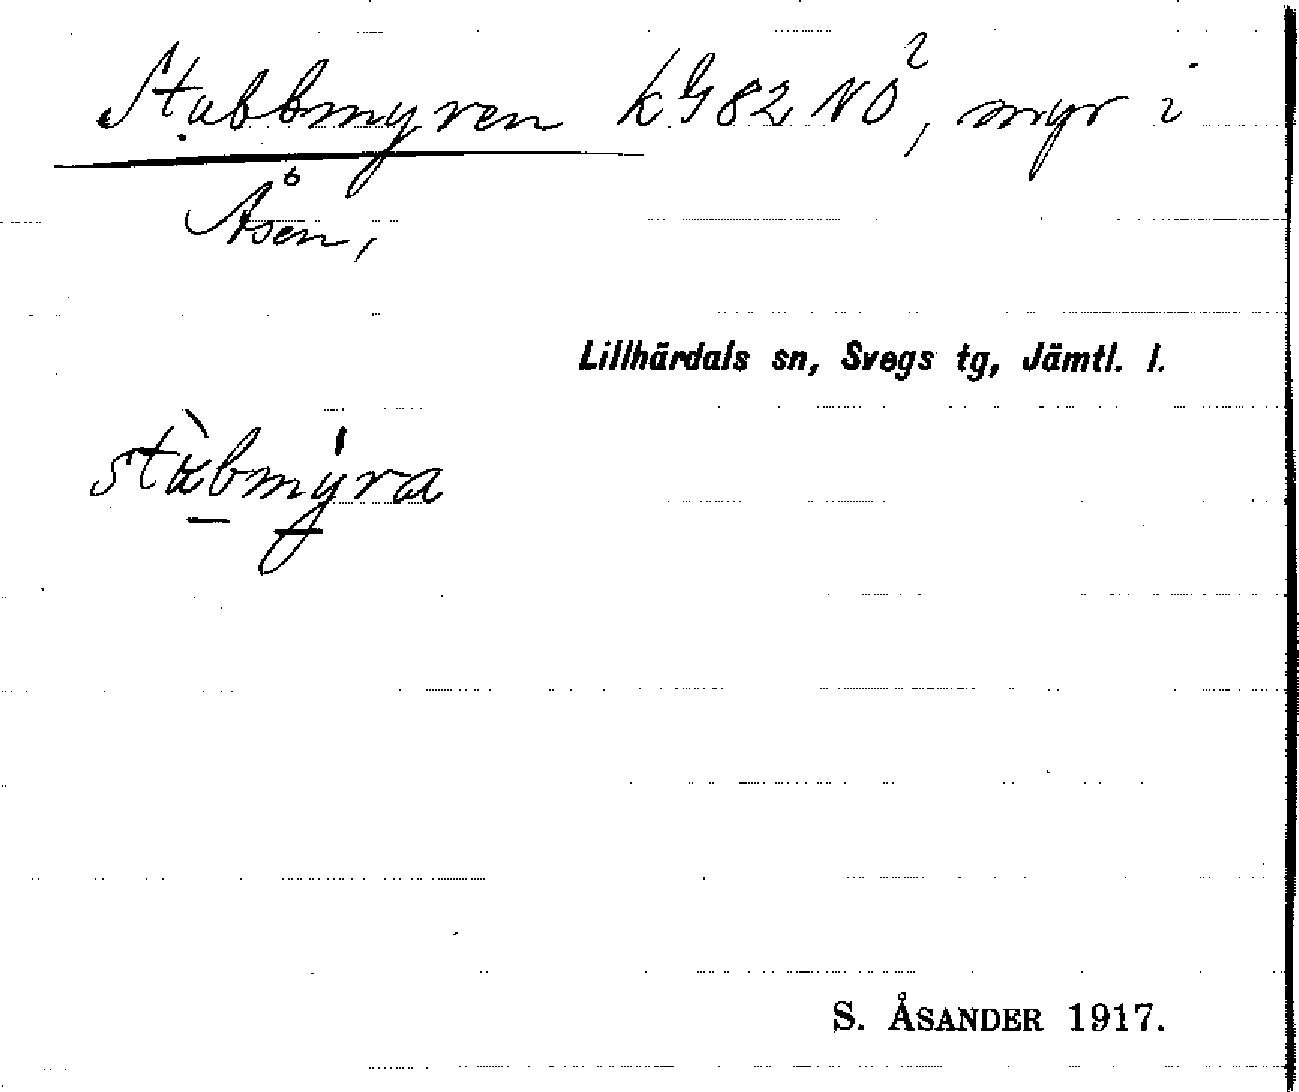 Stubbmyren kG82 NO², myr i
Åsen,
Lillhärdals sn, Svegs tg, Jämtl. l.
stùbmýra
S. ÅSANDER 1917.